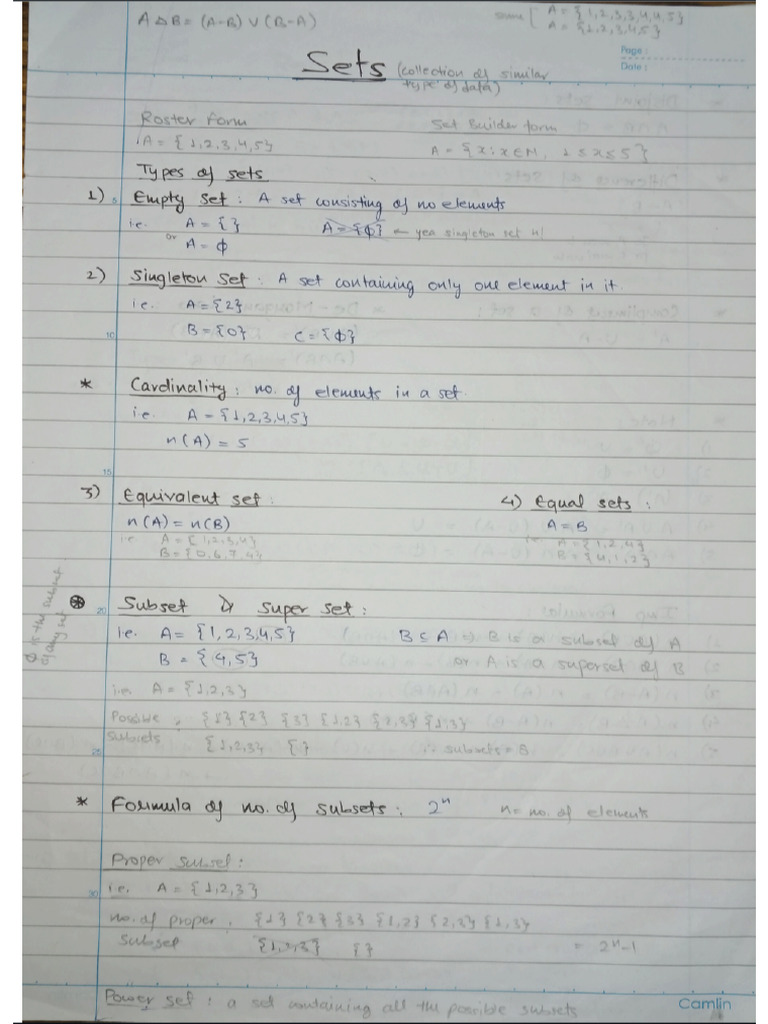 A △ B = (A-B) ∪ (B-A)
same [ A = {1,2,3,3,4,4,5}
A = {1,2,3,4,5}
Page :
Date :
Sets (collection of similar
type of data)
Roster form
Set Builder form
A = {1,2,3,4,5}
A = {x : x ∈ N, 1 ≤ x ≤ 5}
Types of sets
1) 5 Empty set : A set consisting of no elements
i.e. A = { } A = {ϕ} ← yea singleton set h/
or A = ϕ
2) Singleton Set : A set containing only one element in it.
i.e. A = {2}
10 B = {0} C = {ϕ}
* Cardinality : no. of elements in a set.
i.e. A = {1,2,3,4,5}
n(A) = 5
15
3) Equivalent set :
n(A) = n(B)
i.e A = {1,2,3,4}
B = {0,6,7,4}
4) Equal sets :
A = B
i.e. A = {1,2,4}
B = {4,1,2}
ϕ is the subset
of any set
20 Subset & Super set :
i.e. A = {1,2,3,4,5} B ⊆ A ⇒ B is a subset of A
B = {4,5} or A is a superset of B
i.e. A = {1,2,3}
Possible , {1} {2} {3} {1,2} {2,3} {1,3}
Subsets {1,2,3} { } ∴ subsets = 8
25
* Formula of no. of subsets : 2ⁿ n = no. of elements
Proper subset :
30 i.e. A = {1,2,3}
no. of proper , {1} {2} {3} {1,2} {2,3} {1,3}
Subset {1,2,3} { } = 2ⁿ-1
Power set : a set containing all the possible subsets
Camlin